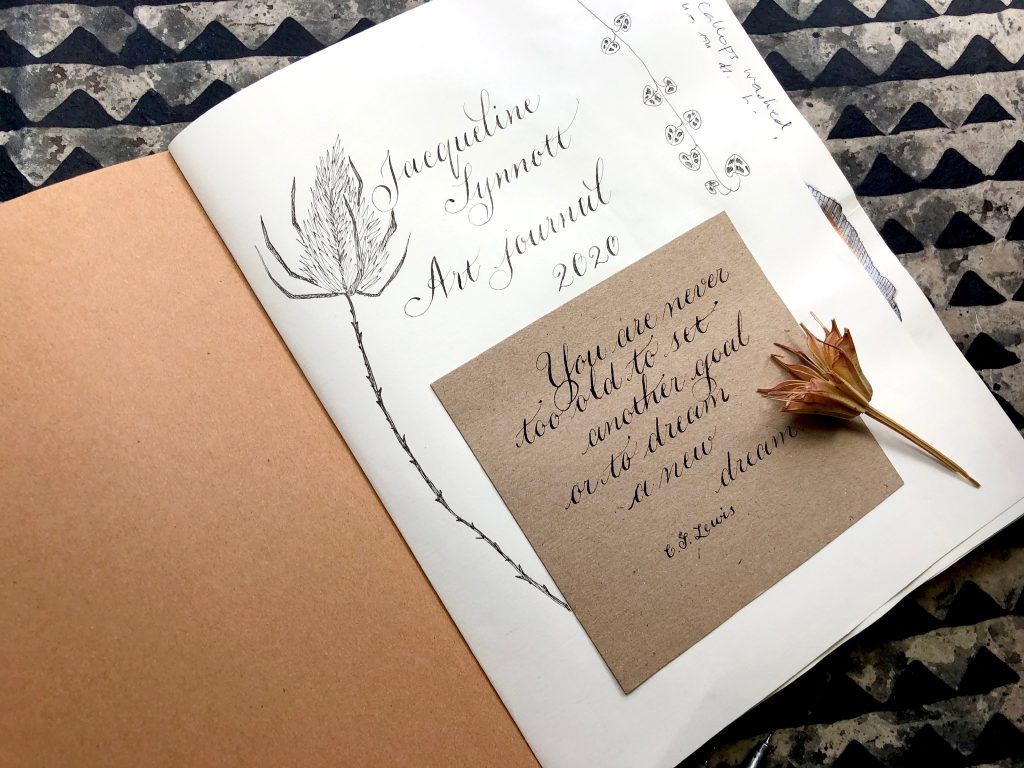 Jacqueline
Lynnott
Art journal
2020
You are never
too old to set
another goal
or to dream
a new
dream
C.S. Lewis
washed